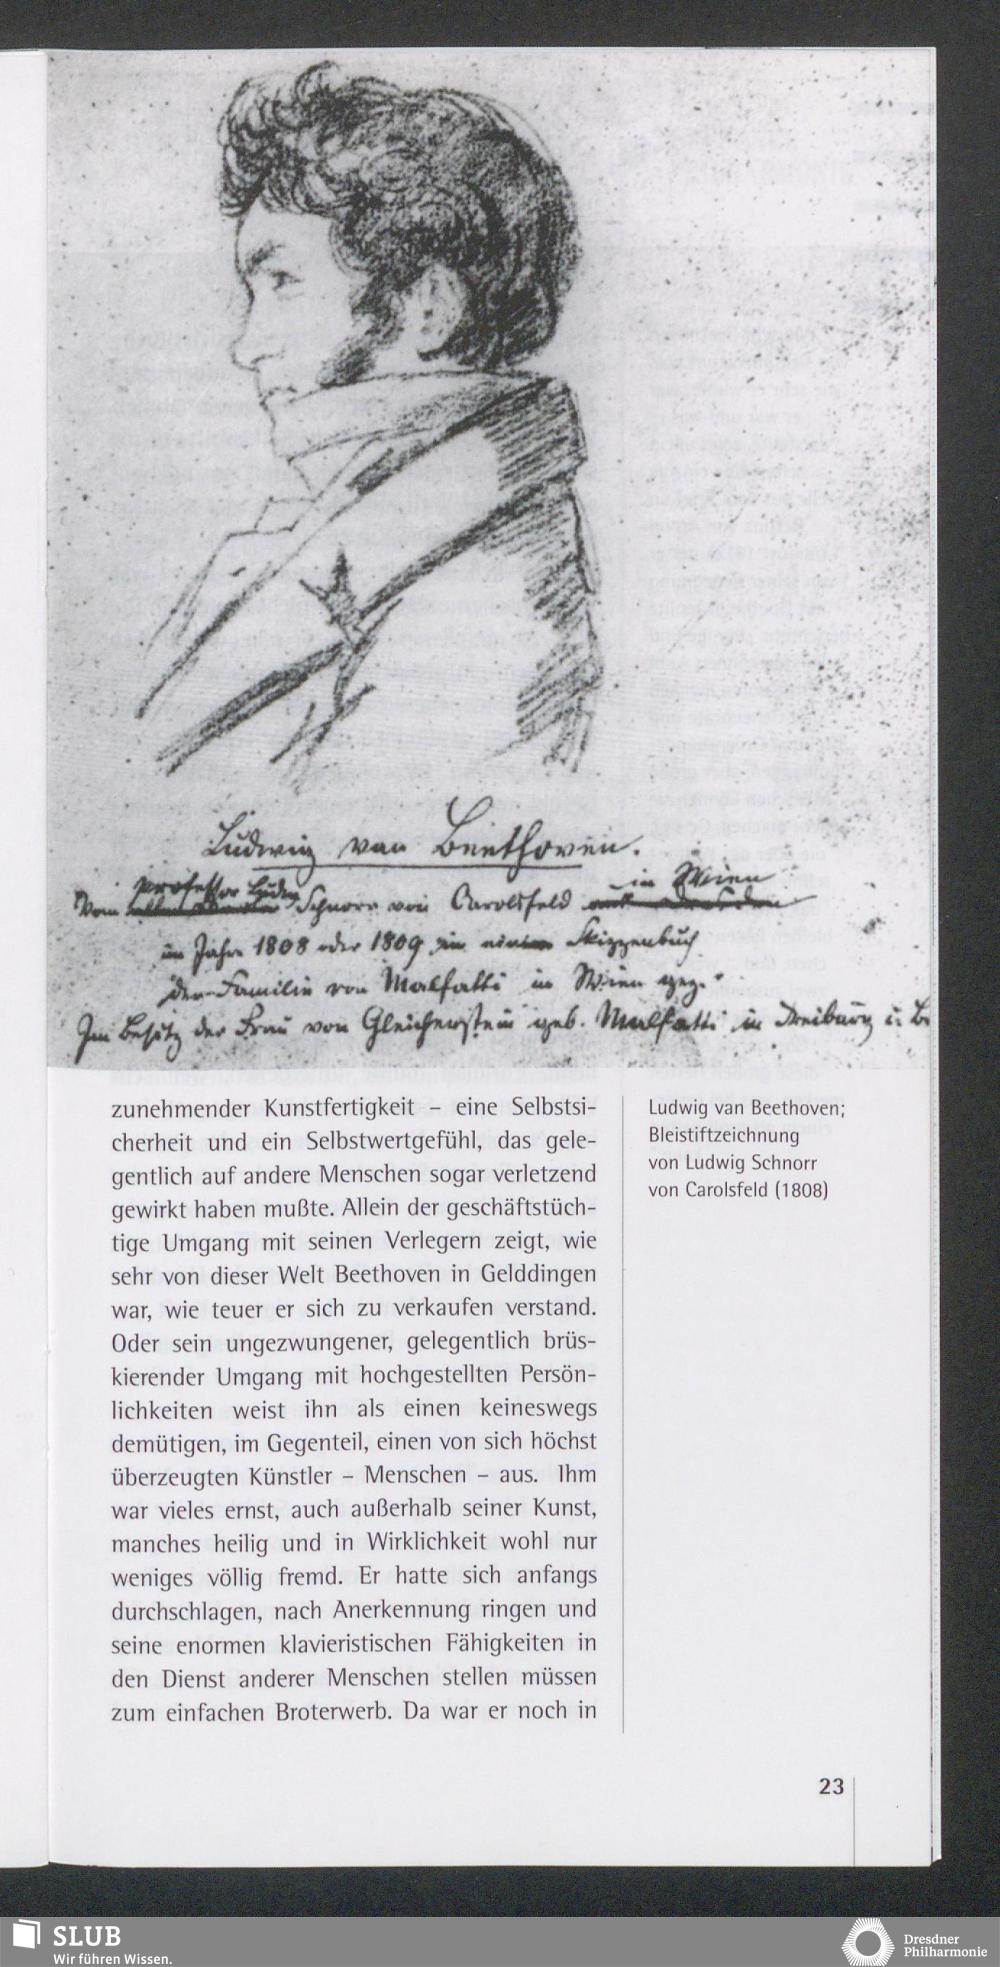 Ludwig van Beethoven.
Professor Ludwig in Wien
Vom Schnorr von Carolsfeld
im Jahre 1808 oder 1809 Skizzenbuch
der Familie von Malfatti in Wien gez.
Im Besitz der Frau von Gleichenstein geb. Malfatti in Freiburg i. B
zunehmender Kunstfertigkeit – eine Selbstsi-
cherheit und ein Selbstwertgefühl, das gele-
gentlich auf andere Menschen sogar verletzend
gewirkt haben mußte. Allein der geschäftstüch-
tige Umgang mit seinen Verlegern zeigt, wie
sehr von dieser Welt Beethoven in Gelddingen
war, wie teuer er sich zu verkaufen verstand.
Oder sein ungezwungener, gelegentlich brüs-
kierender Umgang mit hochgestellten Persön-
lichkeiten weist ihn als einen keineswegs
demütigen, im Gegenteil, einen von sich höchst
überzeugten Künstler – Menschen – aus. Ihm
war vieles ernst, auch außerhalb seiner Kunst,
manches heilig und in Wirklichkeit wohl nur
weniges völlig fremd. Er hatte sich anfangs
durchschlagen, nach Anerkennung ringen und
seine enormen klavieristischen Fähigkeiten in
den Dienst anderer Menschen stellen müssen
zum einfachen Broterwerb. Da war er noch in
Ludwig van Beethoven;
Bleistiftzeichnung
von Ludwig Schnorr
von Carolsfeld (1808)
23
SLUB
Wir führen Wissen.
Dresdner
Philharmonie